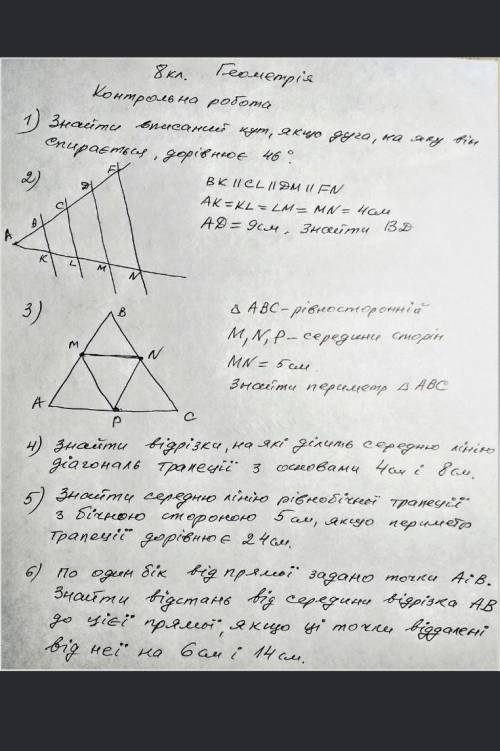 8кл. Геометрія
Контрольна робота
1) Знайти вписаний кут, якщо дуга, на яку він
спирається, дорівнює 46°.
2)
A B C D F
K L M N
BK || CL || DM || FN
AK = KL = LM = MN = 4см
AD = 9см. Знайти BD
3)
B
M N
A P C
△ ABC – рівносторонній
M, N, P – середини сторін
MN = 5см
Знайти периметр △ ABC
4) Знайти відрізки, на які ділить середню лінію
діагональ трапеції з основами 4см і 8см.
5) Знайти середню лінію рівнобічної трапеції
з бічною стороною 5см, якщо периметр
трапеції дорівнює 24см.
6) По один бік від прямої задано точки А і В.
Знайти відстань від середини відрізка АВ
до цієї прямої, якщо ці точки віддалені
від неї на 6см і 14см.